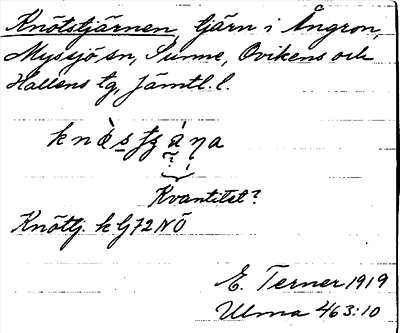 Knötstjärnen, tjärn i Ångron,
Myssjö sn, Sunne, Ovikens och
Hallens tg, Jämtl. l.
Kvantitet?
Knöttj. k G72 NÖ
E. Terner 1919
Ulma 463:10